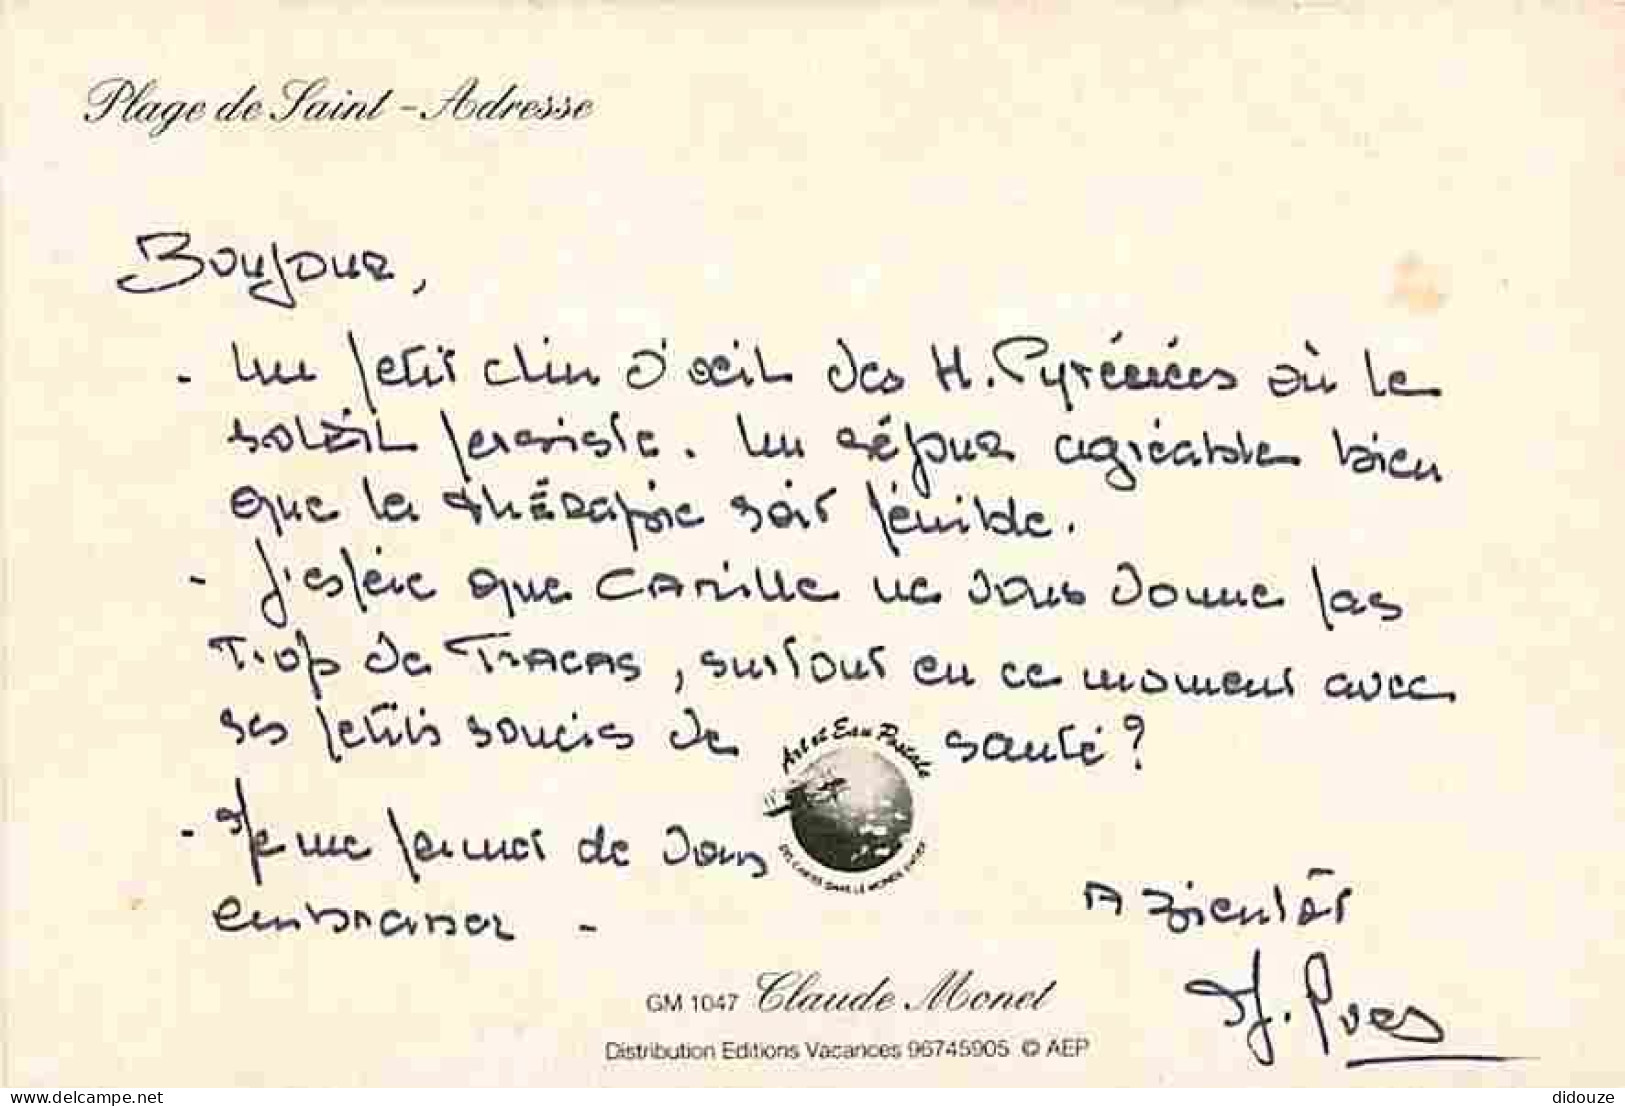 Plage de Saint - Adresse
Bonjour,
- Un petit clin d'œil des H. Pyrénées où le
soleil persiste. Un séjour agréable bien
que la thérapie soit pénible.
- J'espère que Camille ne vous donne pas
trop de tracas, surtout en ce moment avec
ses petits soucis de santé ?
Art et Eau Postale
- Je me permet de vous
embrasser -
A bientôt
J. Yves
GM 1047 Claude Monet
Distribution Editions Vacances 96745905 © AEP
delcampe.net
didouze